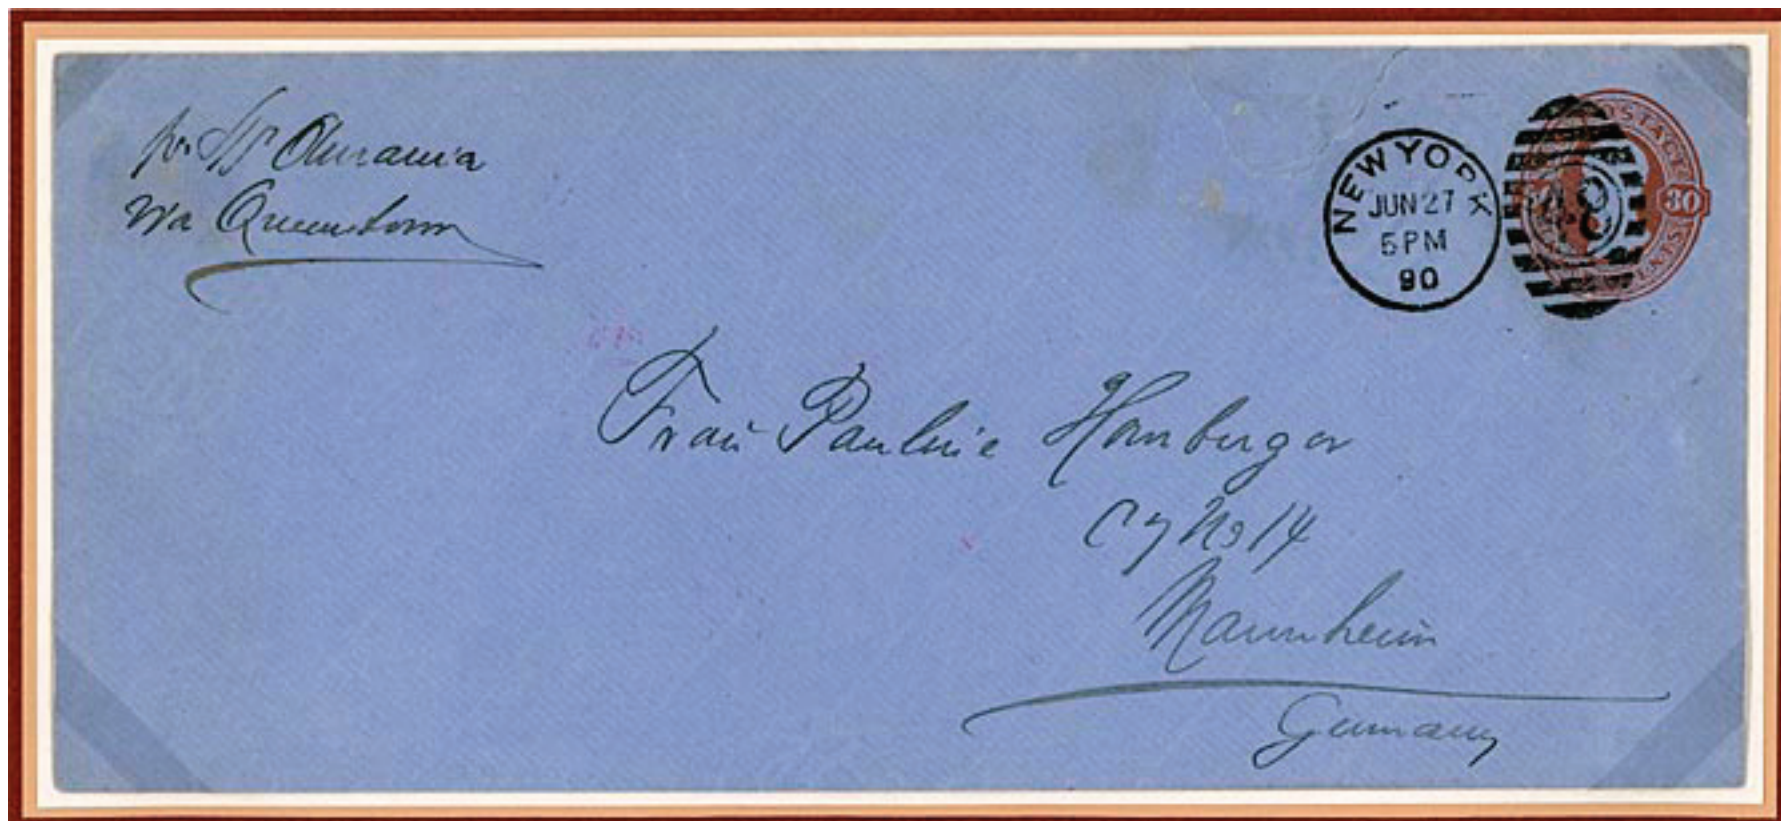 pr SS Aurania
via Queenstown
NEW YORK
JUN 27
5 PM
90
POSTAGE
30
CENTS
Frau Pauline Homburger
C 7 No 14
Mannheim
Germany